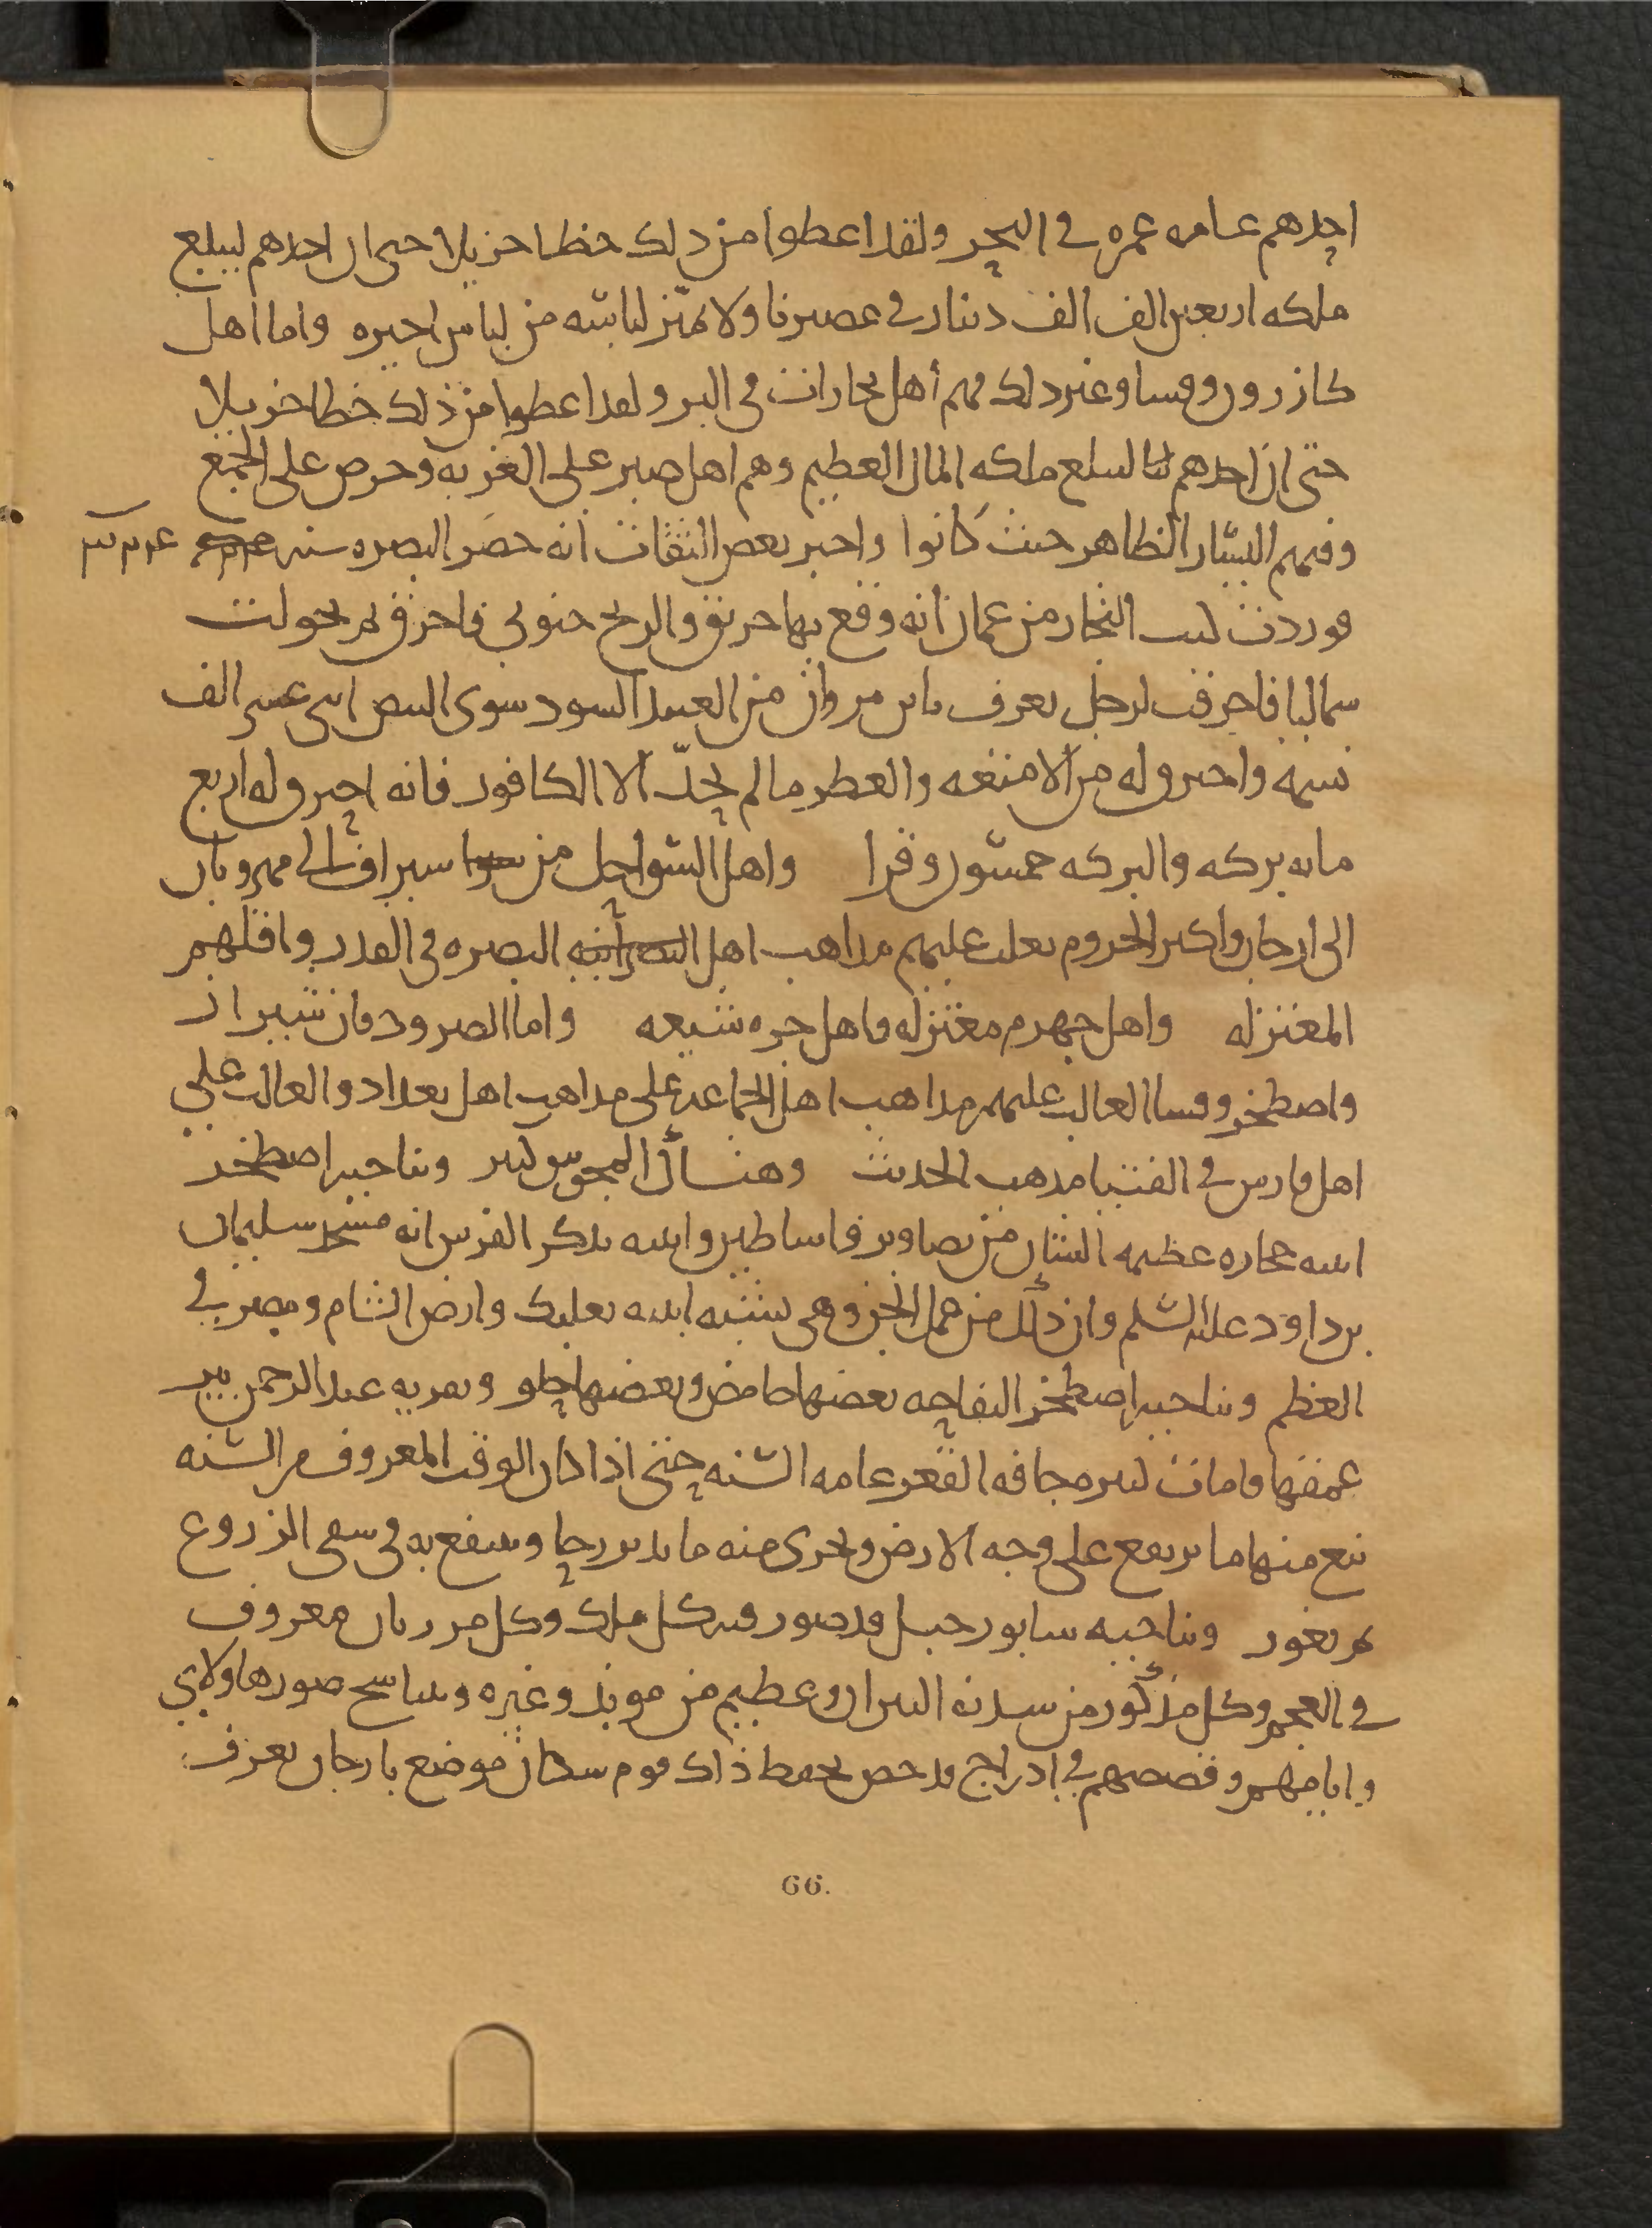 احدهم عامه عمره في البحر ولقد اعطوا من ذلك حظا جزيلا حتى ان احدهم ليبلغ
ملكه اربعين الف الف دينار في عصرنا ولا تميز لباسه من لباس اجيره واما اهل
كازرون وفسا وغير ذلك فهم أهل تجارات في البر ولقد اعطوا من ذلك حظا جزيلا
حتى ان احدهم ليبلغ ملكه المال العظيم وهم اهل صبر على الغربه وحرص على الجمع
وفيهم اليسار الظاهر حيث كانوا واخبر بعض الثقات انه حضر البصره سنه
فوردت كتب التجار من عمان انه وقع بها حريق والريح جنوبي فاحرق ثم تحولت
شمالا فاحرقت لرجل يعرف بابن مروان من العبيد السود سوى البيض اثنى عشر الف
نسمه واحترق له من الامتعه والعطر ما لم يحدّ الا الكافور فانه احترق له اربع
مايه بركه والبركه خمسون وقرا واهل السواحل من سيراف الى مهروبان
الى ارجان واكثر الجروم يغلب عليهم مذاهب اهل البصره في القدر واقلهم
المعتزله واهل جهرم معتزله واهل خره شيعه واما الصرود فان شيراز
واصطخر وفسا الغالب عليهم مذاهب اهل الجماعه على مذاهب اهل بغداد والغالب على
اهل فارس في الفتيا مذهب الحديث وهناك المجوس كثير وبناحيه اصطخر
ابنيه حجاره عظيمه الشان من تصاوير واساطين وابنيه يذكر الفرس انه مسجد سليمان
بن داود عليه السلم وان ذلك من عمل الجن وهي تشبه ابنيه بعلبك وارض الشام ومصر في
العظم وبناحيه اصطخر التفاحه بعضها حامض وبعضها حلو وبقريه عبد الرحمن بير
عمقها قامات كثيره جافه القعر عامه السنه حتى اذا كان الوقت المعروف من السنه
نبع منها ما يرتفع على وجه الارض ويجرى منه ما يدير رحا وينتفع به في سقى الزروع
ثم تغور وبناحيه سابور جبل قد صور فيه كل ملك وكل مرزبان معروف
في العجم وكل مذكور من سدنه النيران وعظيم من موبذ وغيره وتناسخ صورها ولاي
وايامهم وقصصهم في ادراج قد خص بحفظ ذلك قوم سكان موضع بارجان يعرف
66.